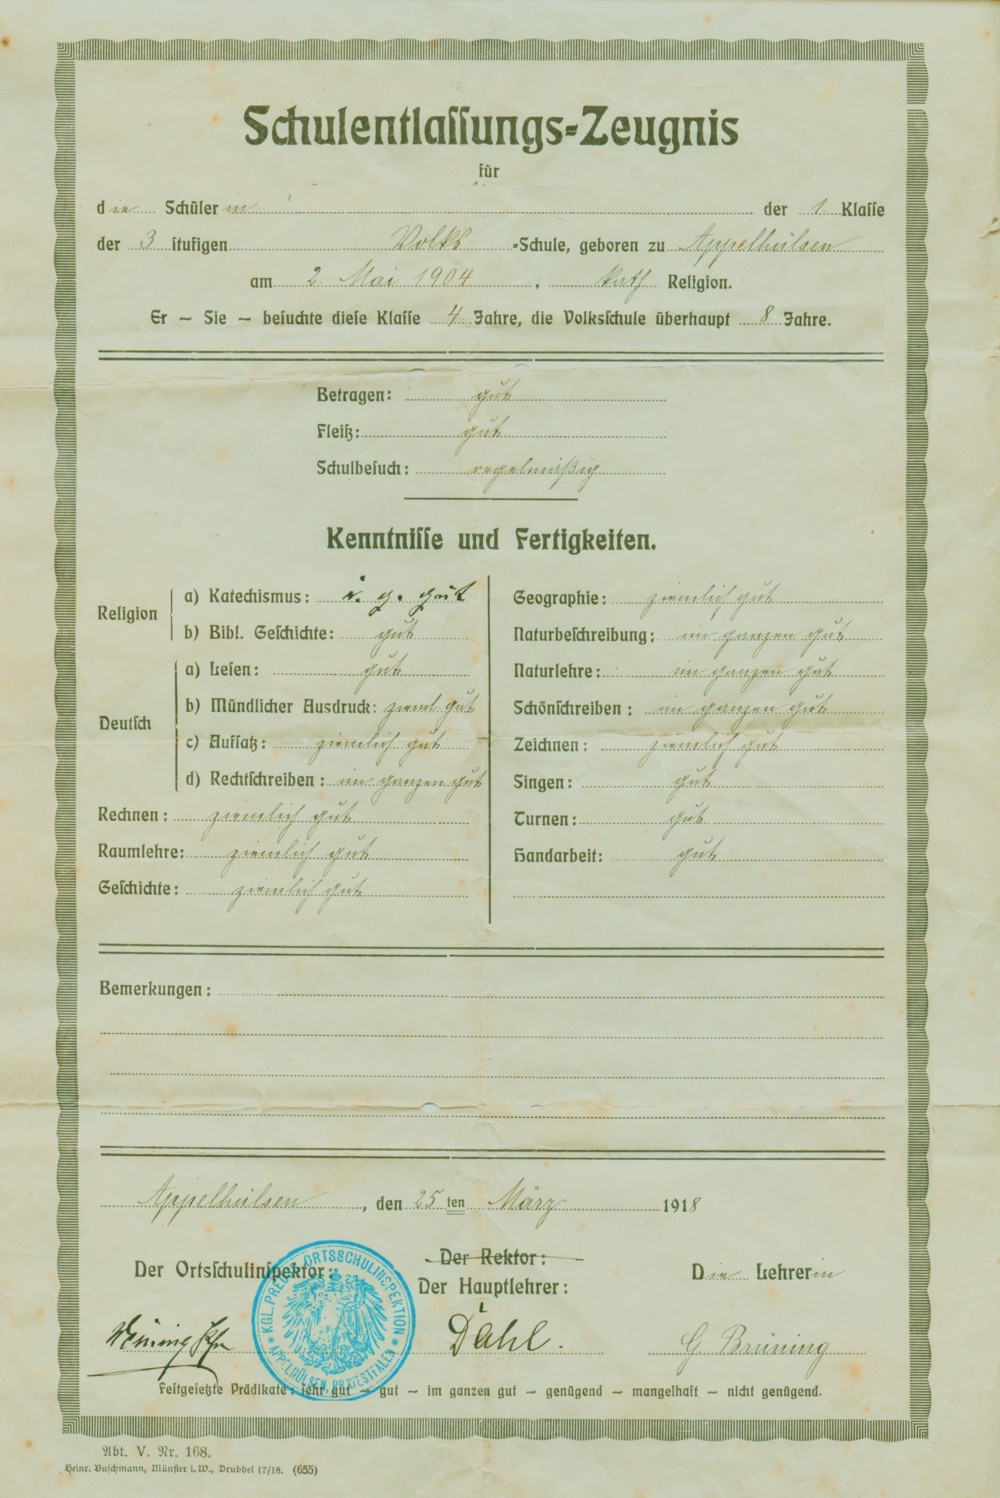 Schulentlassungs-Zeugnis
für
die Schülerin der 1. Klasse
der 3 stufigen Volks -Schule, geboren zu Appelhülsen
am 2. Mai 1904, kath Religion.
Er – Sie – besuchte diese Klasse 4 Jahre, die Volksschule überhaupt 8 Jahre.
Betragen: gut
Fleiß: gut
Schulbesuch: regelmäßig
Kenntnisse und Fertigkeiten.
Religion
a) Katechismus: i. g. gut
b) Bibl. Geschichte: gut
Deutsch
a) Lesen: gut
b) Mündlicher Ausdruck: zieml gut
c) Aufsatz: ziemlich gut
d) Rechtschreiben: im ganzen gut
Rechnen: ziemlich gut
Raumlehre: ziemlich gut
Geschichte: ziemlich gut
Geographie: ziemlich gut
Naturbeschreibung: im ganzen gut
Naturlehre: im ganzen gut
Schönschreiben: im ganzen gut
Zeichnen: ziemlich gut
Singen: gut
Turnen: gut
Handarbeit: gut
Bemerkungen:
Appelhülsen, den 25 ten März 1918
Der Ortsschulinspektor:
Der Rektor:
Der Hauptlehrer:
Die Lehrerin
KGL. PREUSS. ORTSSCHULINSPEKTION
APPELHÜLSEN
Dahl.
G Brüning
Festgesetzte Prädikate: sehr gut – gut – im ganzen gut – genügend – mangelhaft – nicht genügend.
Abt. V. Nr. 168.
Heinr. Buschmann, Münster i. W., Drubbel 17/18. (655)